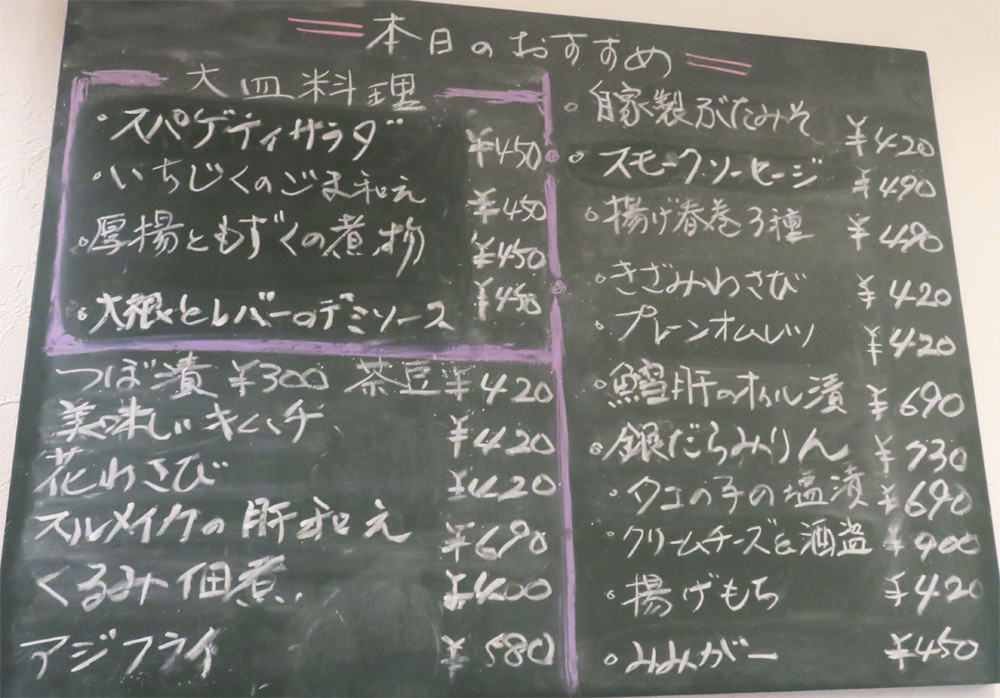 本日のおすすめ
大皿料理
・スパゲティサラダ ¥450
・いちじくのごま和え ¥450
・厚揚ともずくの煮物 ¥450
・大根とレバーのデミソース ¥450
つぼ漬 ¥300 茶豆 ¥420
美味しいキムチ ¥420
花わさび ¥420
スルメイカの肝和え ¥690
くるみ佃煮 ¥400
アジフライ ¥580
・自家製ぶたみそ ¥420
・スモークソーセージ ¥490
・揚げ春巻3種 ¥490
・きざみわさび ¥420
・プレーンオムレツ ¥420
・鱈肝のオイル漬 ¥690
・銀だらみりん ¥730
・タコの子の塩漬 ¥690
・クリームチーズと酒盗 ¥400
・揚げもち ¥420
・みみがー ¥450